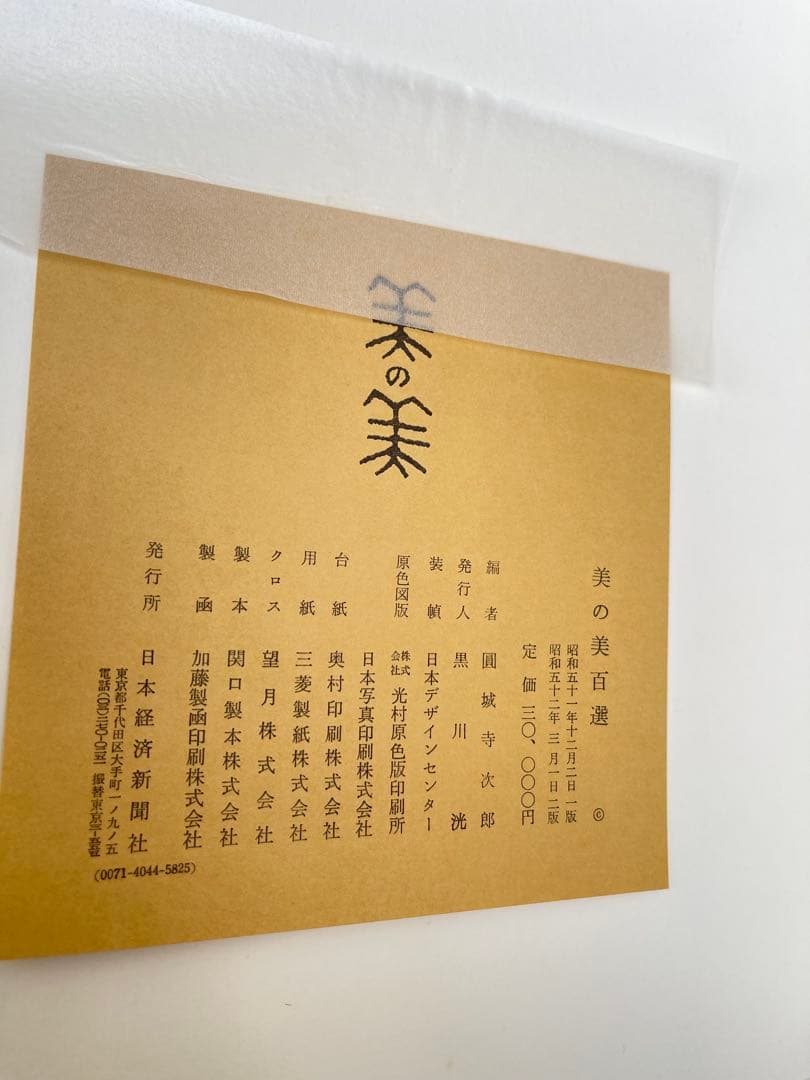 美の美
美の美百選 ©
昭和五十一年十二月二日一版
昭和五十二年三月一日二版
定価 三〇、〇〇〇円
編者 圓城寺次郎
発行人 黒川洸
装幀 日本デザインセンター
原色図版 株式会社 光村原色版印刷所
日本写真印刷株式会社
台紙 奥村印刷株式会社
用紙 三菱製紙株式会社
クロス 望月株式会社
製本 関口製本株式会社
製函 加藤製函印刷株式会社
発行所 日本経済新聞社
東京都千代田区大手町一ノ九ノ五
電話 振替東京
(0071-4044-5825)